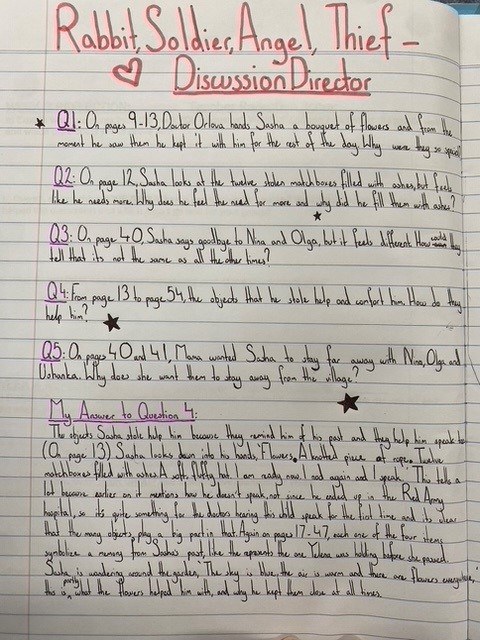 Rabbit, Soldier, Angel, Thief -
Discussion Director
Q1: On pages 9-13, Doctor Orlova hands Sasha a bouquet of flowers and from the
moment he saw them he kept it with him for the rest of the day. Why were they so special?
Q2: On page 12, Sasha looks at the twelve stolen matchboxes filled with ashes, but feels
like he needs more. Why does he feel the need for more and why did he fill them with ashes?
Q3: On page 40, Sasha says goodbye to Nina and Olga, but it feels different. How could they
tell that its not the same as all the other times?
Q4: From page 13 to page 54, the objects that he stole help and comfort him. How do they
help him?
Q5: On pages 40 and 41, Mama wanted Sasha to stay far away with Nina, Olga and
Ushanka. Why does she want them to stay away from the village?
My Answer to Question 4:
The objects Sasha stole help him because they remind him of his past and they help him speak to
(On page 13) Sasha looks down into his hands, 'Flowers. A knotted piece of rope. Twelve
matchboxes filled with ashes. A soft, fluffy hat. I am ready now.' I nod again and I speak. This tells a
lot because earlier on it mentions how he doesn't speak, not since he ended up in the Red Army
hospital, so it's quite something for the doctors hearing this child speak for the first time and its clear
that the many objects, play a big part in that. Again on pages 17-47, each one of the four items
symbolize a memory from Sasha's past, like the represents the one Yelena was holding before she passed.
Sasha is wandering around the garden, 'The sky is blue, the air is warm and there are flowers everywhere,'
this is partly what the flowers helped him with, and why he kept them close at all times.